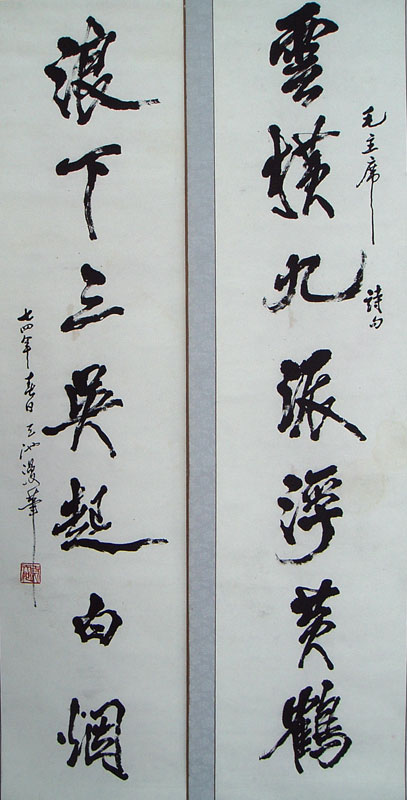 毛主席詩句
雲横九派浮黄鶴
浪下三吳起白烟
七四年春日池漫筆